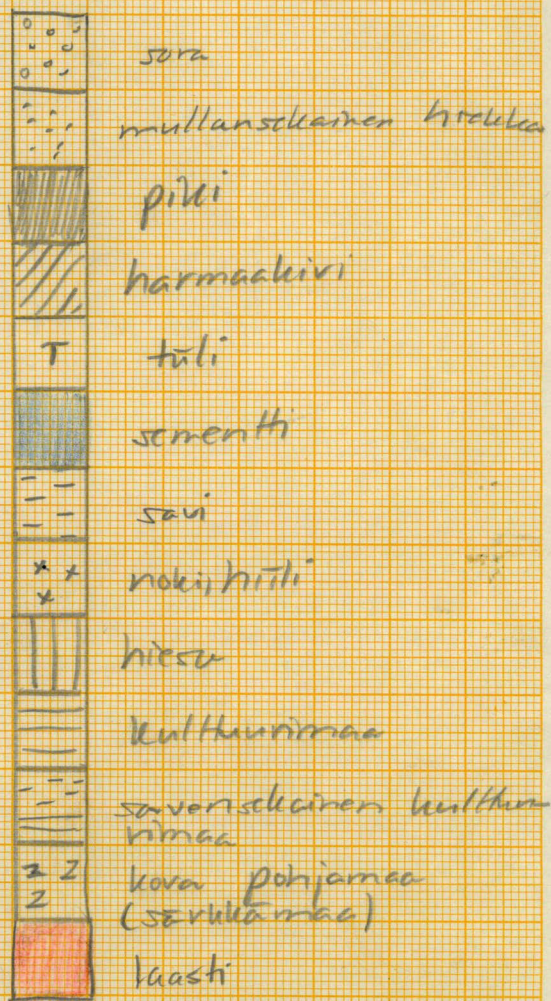 sora
mullansekainen hiekka
piki
harmaakivi
T tiili
sementti
savi
x x x noki, hiili
hiesu
kulttuurimaa
savensekainen kulttuu
rimaa
z z z kova pohjamaa
(särkkämaa)
laasti